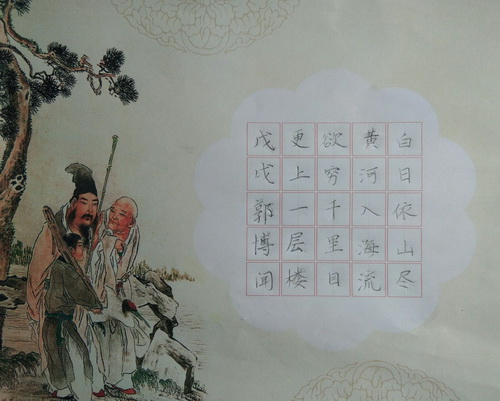 白日依山尽
黄河入海流
欲穷千里目
更上一层楼
戊戌郭博闻